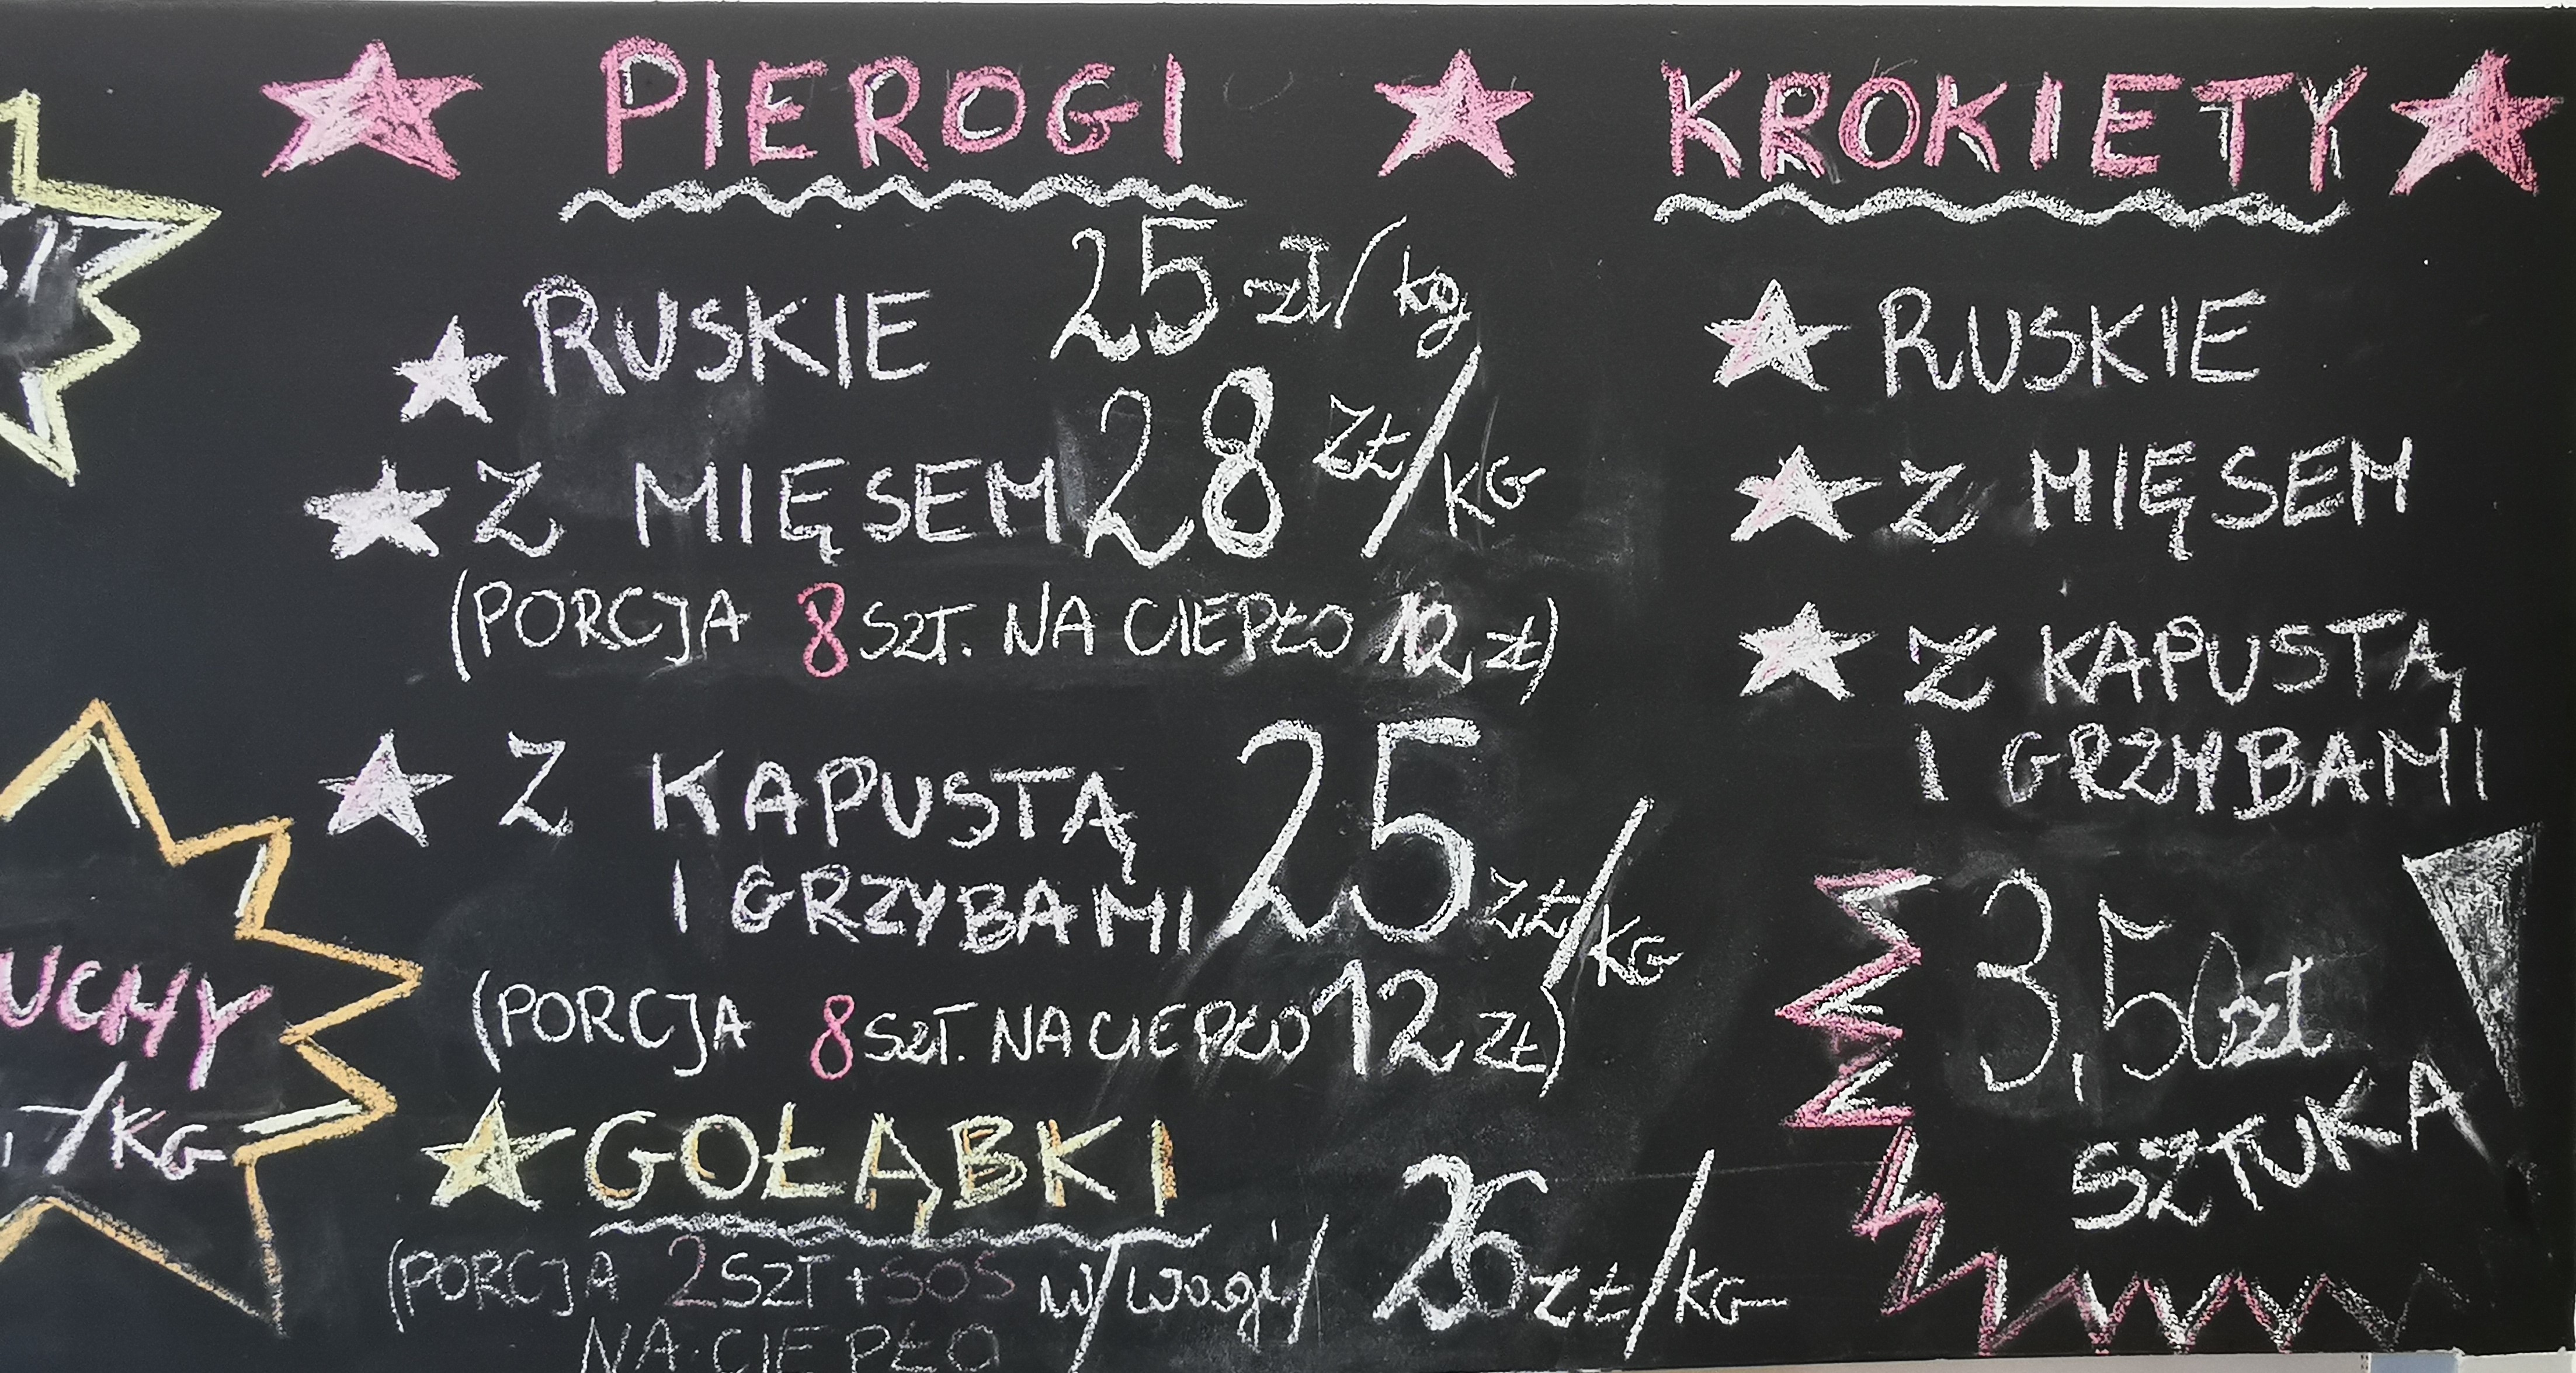 PIEROGI
RUSKIE 25 zł/kg
Z MIĘSEM 28 ZŁ/KG
(PORCJA 8 SZT. NA CIEPŁO zł)
Z KAPUSTĄ
I GRZYBAMI 25 ZŁ/KG
(PORCJA 8 SZT. NA CIEPŁO 12 ZŁ)
GOŁĄBKI
(PORCJA 2 SZT + SOS w/wagi/ 26 ZŁ/KG
NA CIEPŁO
KROKIETY
RUSKIE
Z MIĘSEM
Z KAPUSTĄ
I GRZYBAMI
3,50 zł
SZTUKA
UCHY
/KG